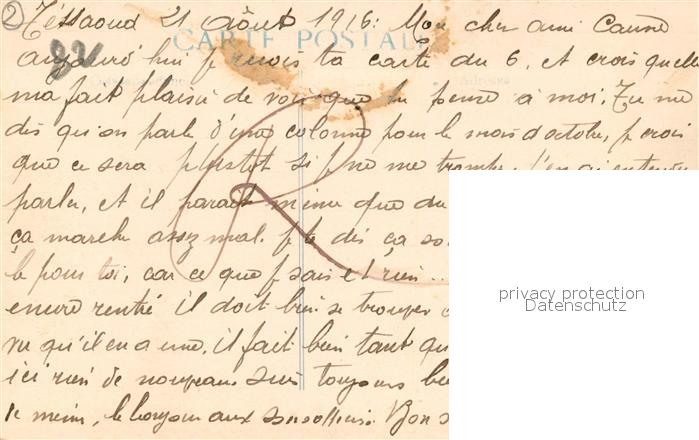 2 Tessaoud 21 Août 1916: Mon cher ami
CARTE POSTALE
24
aujourd'hui je reçois ta carte du 6, et crois qu'elle
ma fait plaisir de voir que tu pense à moi. Tu me
dis qu'on parle d'une colonne pour le mois d'octobre, je crois
que ce sera plustot si je ne me trompe, j'en ai entendu
parler, et il parait même que du
ça marche assez mal. je te dis ça
le pour toi, car ce que je sais et rien ..
encore rentré il doit bien se trouver
vu qu'il en a une, il fait bien tant
ici rien de nouveau suis toujours
le même, le bonjour aux Bon
privacy protection
Datenschutz